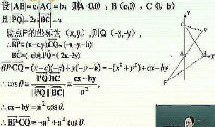 设|AB|=c,|AC|=b, 则A(0,0), B(c,0), C(0,b)
且|PQ|=2a,|BC|=a
设点P的坐标为(x,y), 则Q(-x,-y)
∴BP=(x-c,y),CQ=(-x,-y-b)
BC=(-c,b),PQ=(-2x,-2y)
BP·CQ=(x-c)(-x)+y(-y-b)=-(x²+y²)+cx-by
∴cosθ=PQ·BC/|PQ||BC|=cx-by/a²
∴cx-by=a²cosθ.
∴BP·CQ=-a²+a²cosθ.